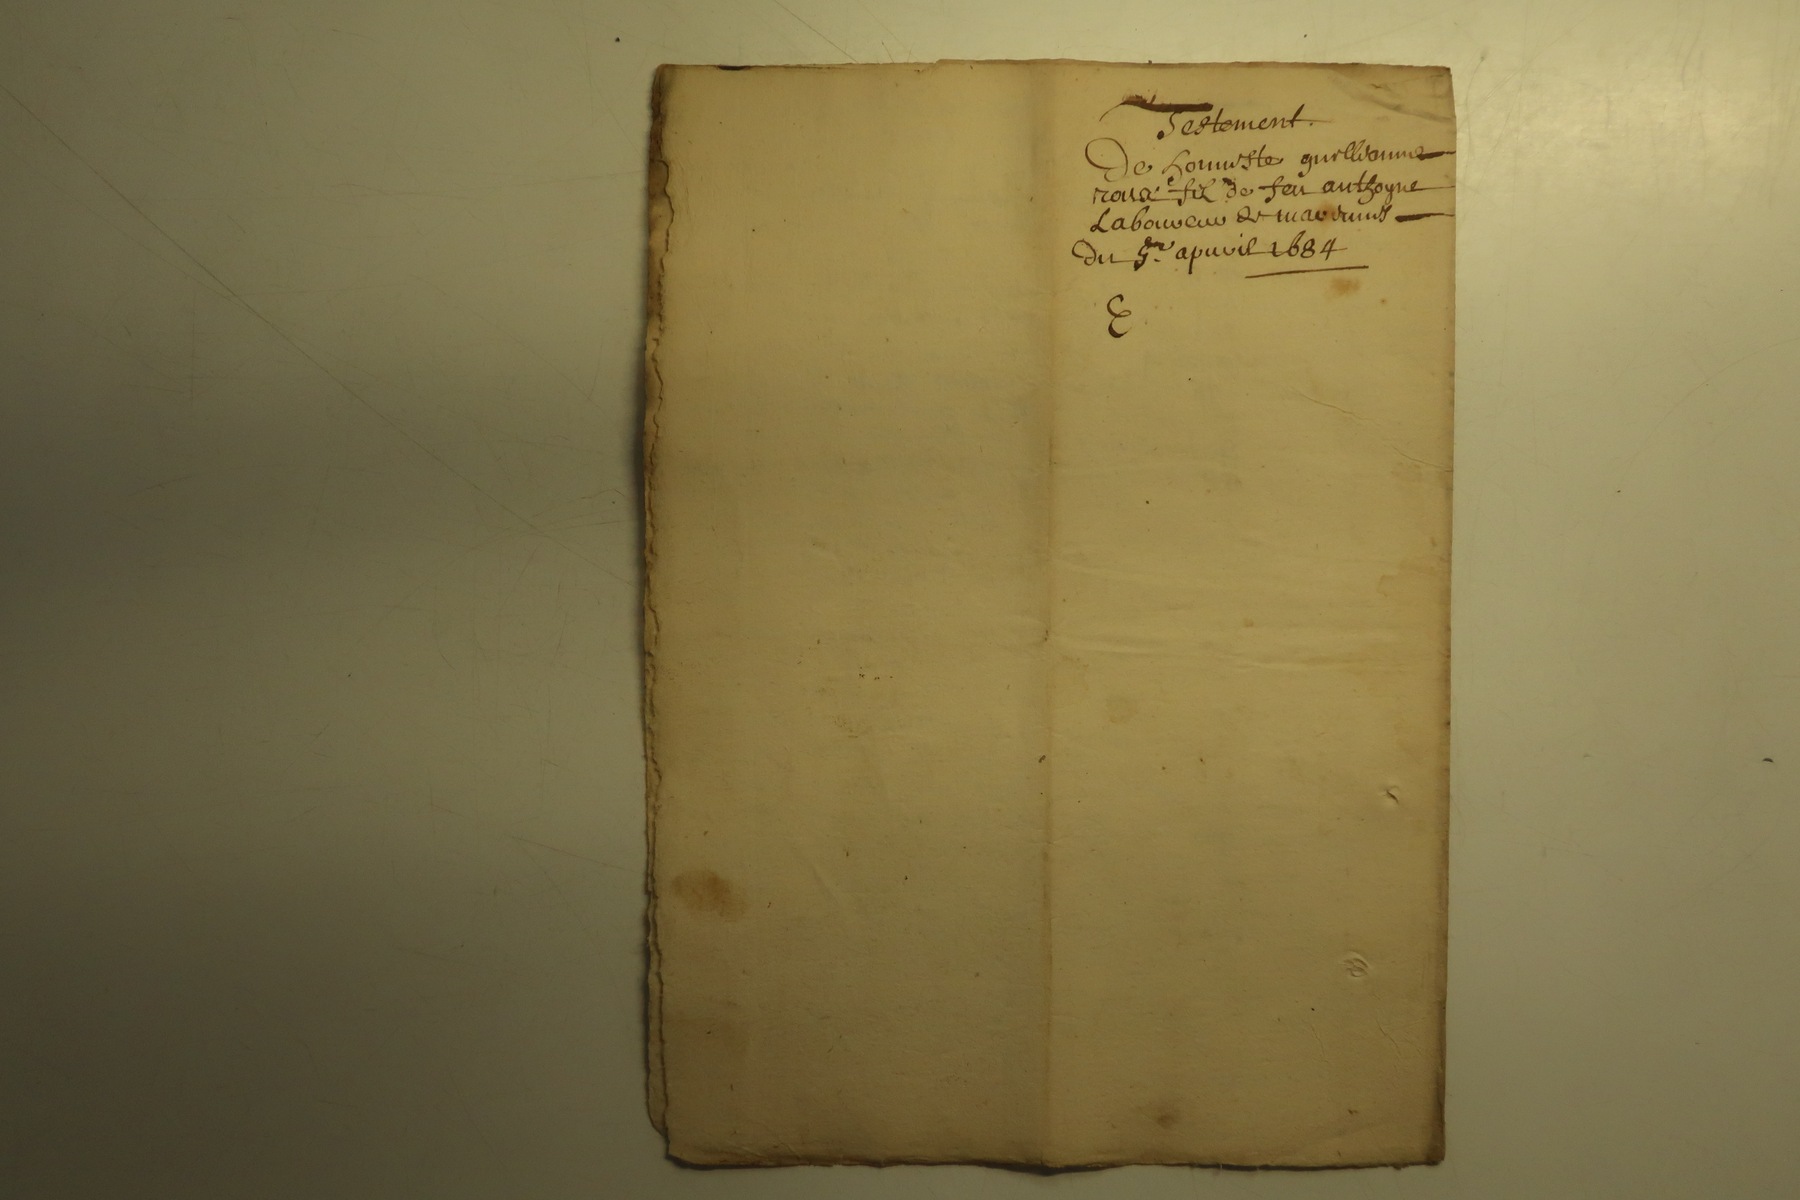 Testement.
De honneste guellieaume
roux fil de feu anthoyne
Laboureur de
du 5me apvril 1684
E